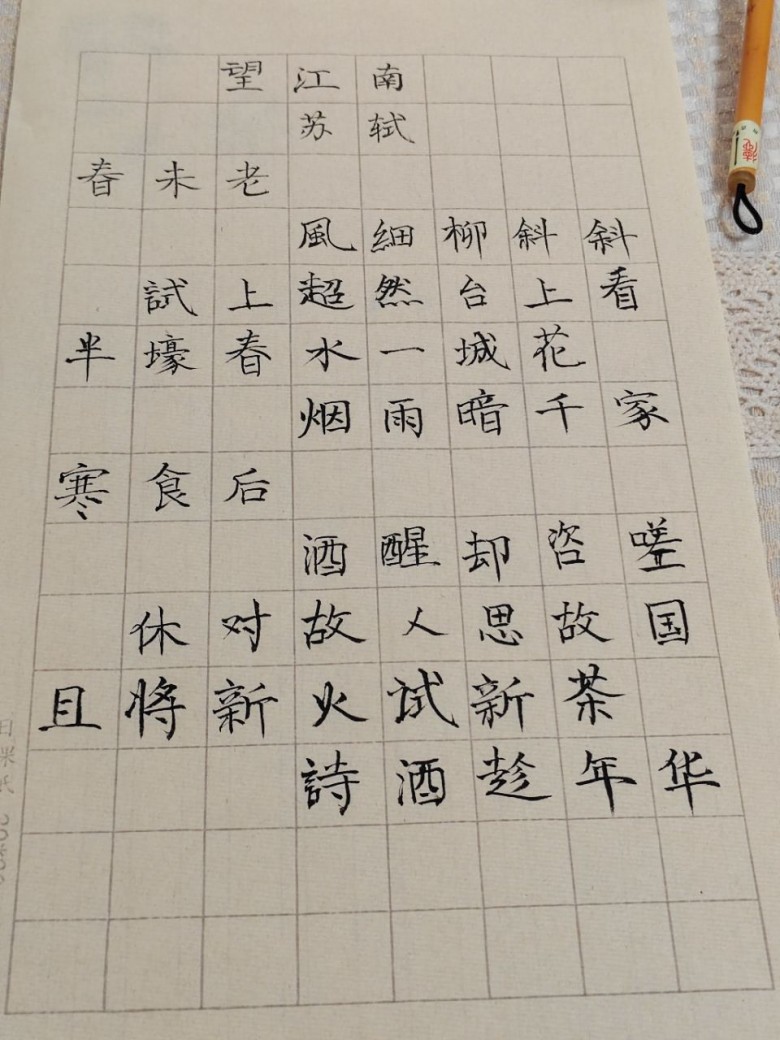 望江南
苏轼
春未老
風細柳斜斜
試上超然台上看
半壕春水一城花
烟雨暗千家
寒食后
酒醒却咨嗟
休对故人思故国
且将新火试新茶
詩酒趁年华